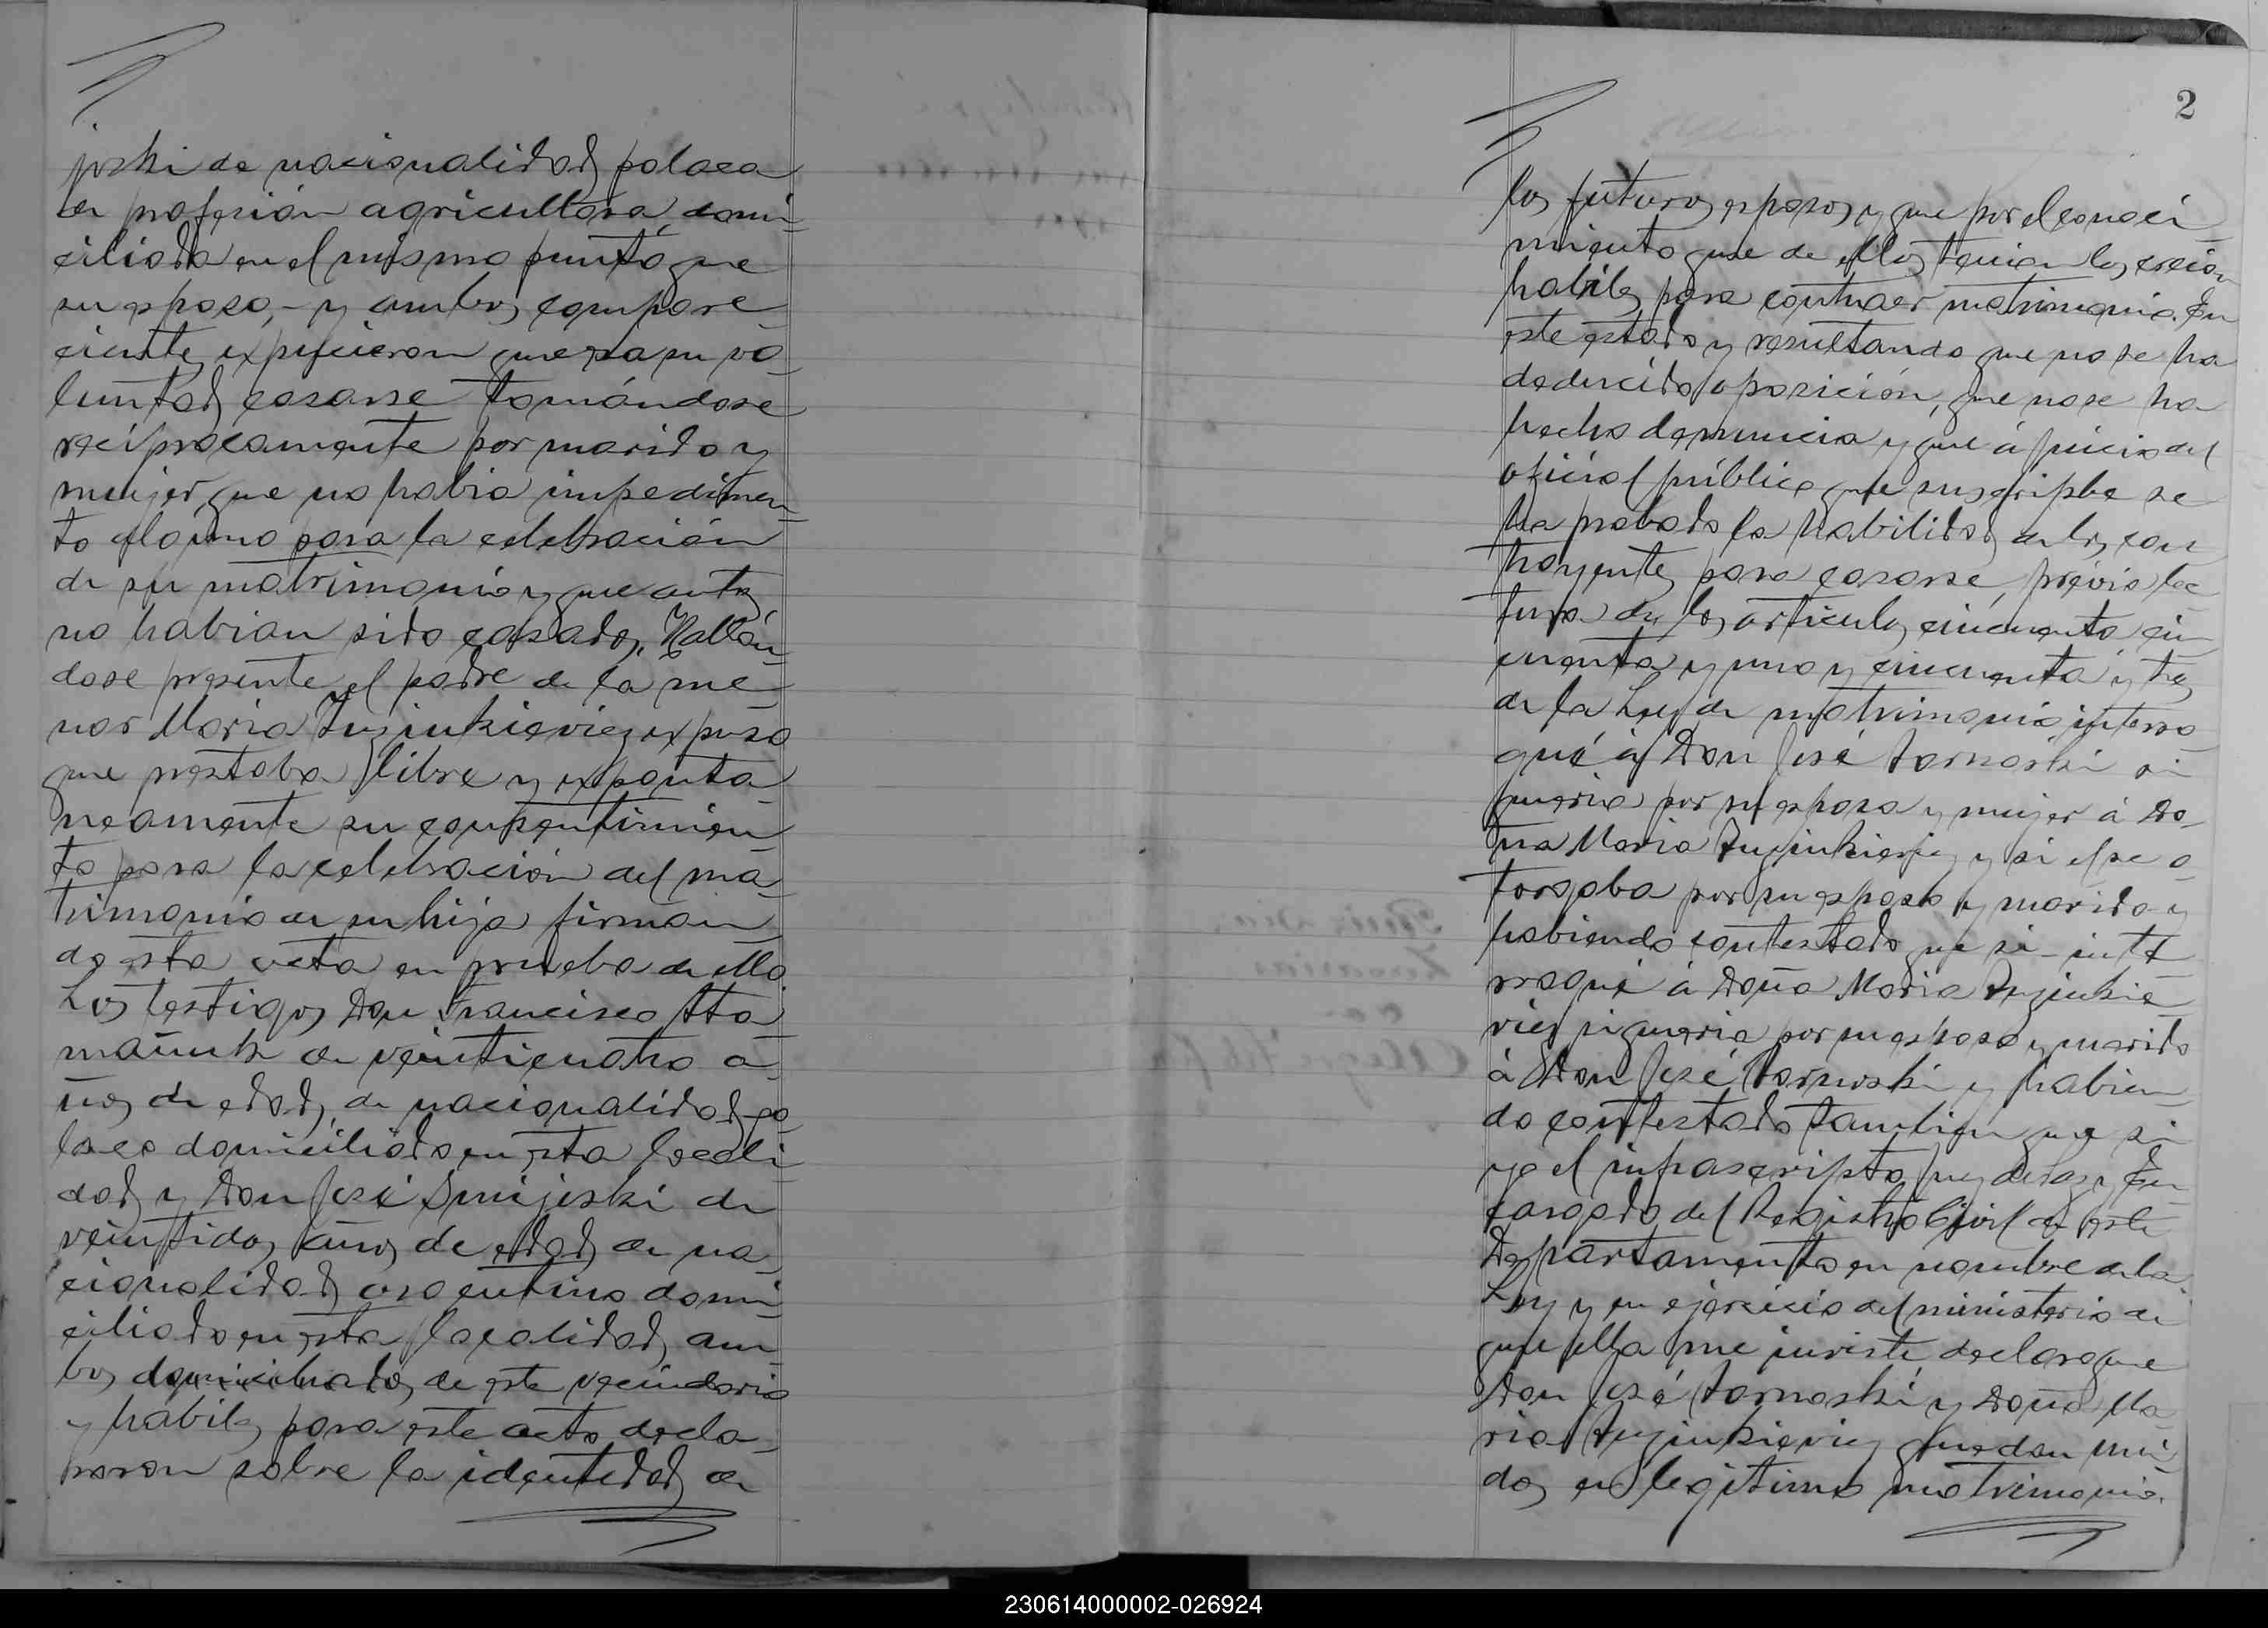 joski de nacionalidad polaca
de profesión agricultora, domi-
ciliada en el mismo punto que
su esposo, - y ambos compare-
cientes expusieron que era su vo-
luntad casarse tomándose
recíprocamente por marido y
mujer, que no habia impedimen-
to alguno para la celebración
de su matrimonio y que antes
no habian sido casados. Hallán-
dose presente el padre de la me-
nor Maria expuso
que prestaba libre y expontá-
neamente su consentimien-
to para la celebración del ma-
trimonio de su hija firman-
do esta acta en prueba de ello.
Los testigos Don Francisco
de veinticuatro a-
ños de edad, de nacionalidad po-
laco domiciliado en esta locali-
dad y Don José Smijoski de
veintidos años de edad de na-
cionalidad argentino domi-
ciliado en esta localidad, am-
bos domiciliados de este vecindario
y hábiles para este acto decla-
raron sobre la identidad de
2
los futuros esposos y que por el conoci-
miento que de ellos tenian los creian
habiles para contraer matrimonio. En
este estado y resultando que no se ha
deducido oposición, que no se ha
hecho denuncia y que á juicio del
oficial público que suscripbe se
ha probado la habilidad de los con-
trayentes para casarse, prévia lec-
tura de los articulos cincuenta cin-
cuenta y uno y cincuenta y tres
de la Ley de matrimonio, interro-
gué á Don José Tarnoski si
queria por su esposa y mujer á Do-
ña Maria y si él se o-
torgaba por su esposo y marido y
habiendo contestado que si - inte-
rrogué á Doña Maria
si queria por su esposo y marido
á Don José Tarnoski y habien-
do contestado tambien que si
yo el infrascripto Juez de Paz y En-
cargado del Registro Civil de este
Departamento en nombre de la
Ley y en ejercicio del ministerio de
que ella me inviste declaro que
Don José Tarnoski y Doña Ma-
ria quedan uni-
dos en legítimo matrimonio.
230614000002-026924